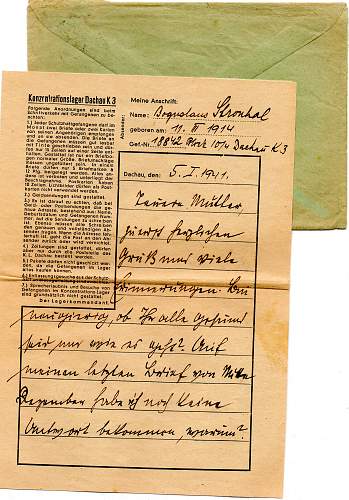 Konzentrationslager Dachau K 3
Folgende Anordnungen sind beim
Schriftverkehr mit Gefangenen zu be-
achten:
1.) Jeder Schutzhaftgefangene darf im
Monat zwei Briefe oder zwei Karten
von seinen Angehörigen empfangen
und an sie absenden. Die Briefe an
die Gefangenen müssen gut lesbar
mit Tinte geschrieben sein und dür-
fen nur 15 Zeilen auf einer Seite ent-
halten. Gestattet ist nur ein Briefbo-
gen normaler Größe. Briefumschläge
müssen ungefüttert sein. In einem
Briefe dürfen nur 5 Briefmarken à
12 Pfg. beigelegt werden. Alles an-
dere ist verboten und unterliegt der
Beschlagnahme. Postkarten haben
10 Zeilen. Lichtbilder dürfen als Post-
karten nicht verwendet werden.
2.) Geldsendungen sind gestattet.
3.) Es ist darauf zu achten, daß bei
Geld- oder Postsendungen die ge-
naue Adresse, bestehend aus: Name,
Geburtsdatum und Gefangenen-Num-
mer, auf die Sendungen zu schrei-
ben
4.) Zeitungen sind gestattet, dürfen
aber nur durch die Poststelle des
K. L. Dachau bestellt werden.
5.) Pakete dürfen nicht geschickt wer-
den, da die Gefangenen im Lager
alles kaufen können.
6.) Entlassungsgesuche aus der Schutz-
haft
7.) Sprecherlaubnis und Besuche von
Gefangenen im Konzentrations-Lager
sind grundsätzlich nicht gestattet.
Der Lagerkommandant
Absender:
Meine Anschrift:
Name: Boguslaus Stronhal
geboren am: 11. III 1914
Gef.-Nr. 18842 Block 10/4 Dachau K 3
Dachau, den 5. I. 1941.
Teuere Mutter
zuerst herzlichen
Gruß und viele
Erinnerungen. Bin
neugierig, ob Ihr alle gesund
seid und wie es geht? Auf
meinen letzten Brief von Mitte
Dezember habe ich noch keine
Antwort bekommen, warum?